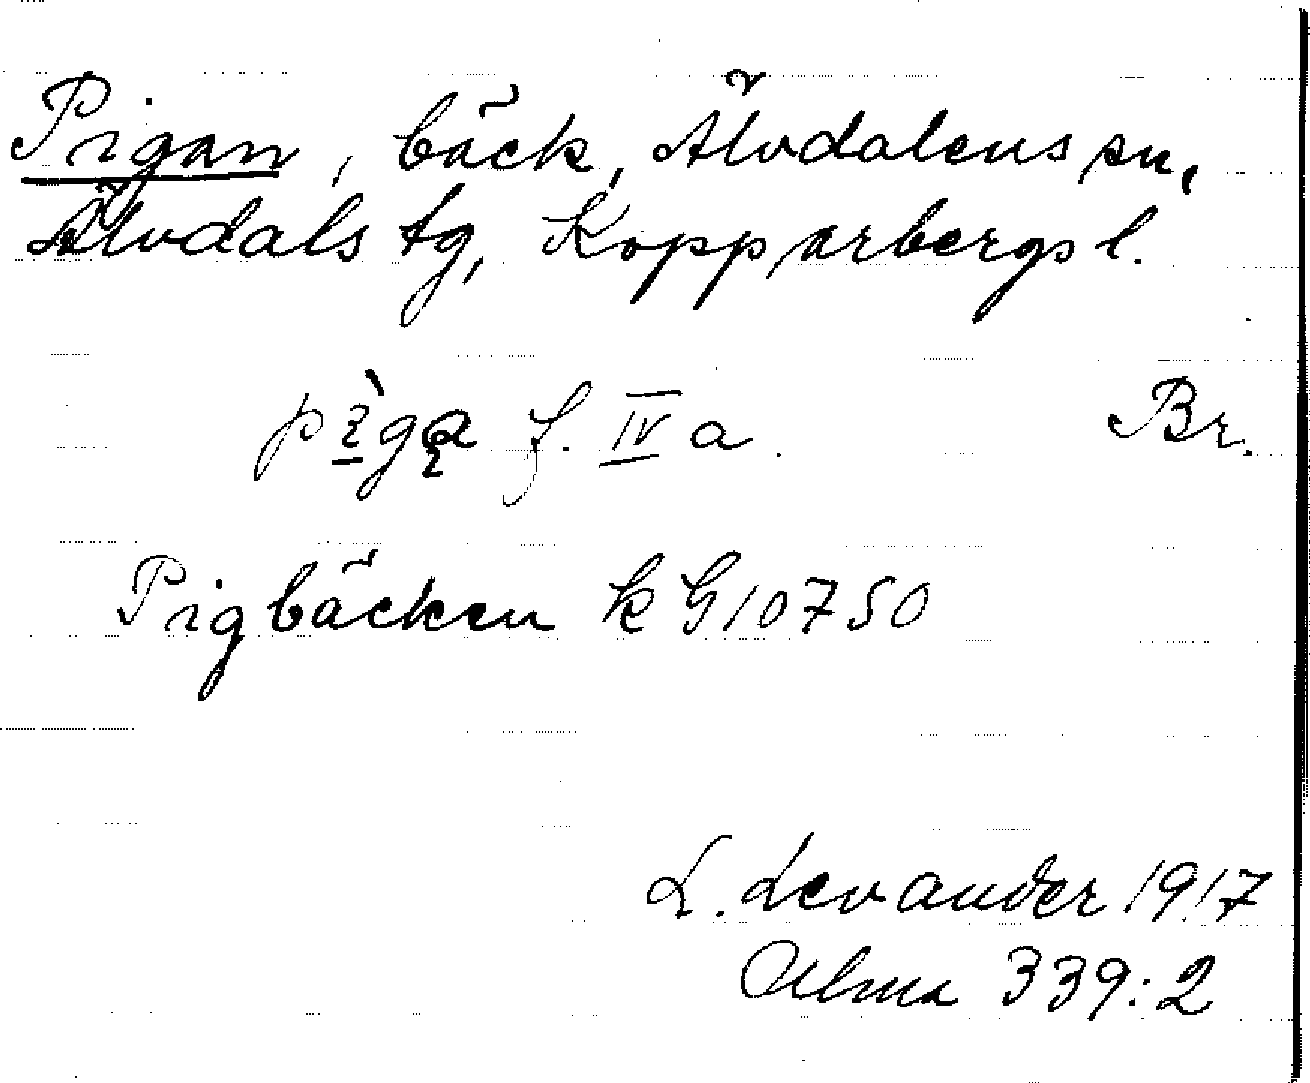 Pigan, bäck, Älvdalens sn,
Älvdals tg, Kopparbergs l.
f. IV a. Br.
Pigbäcken k G 10750
L. Levander 1917
Alma 339:2